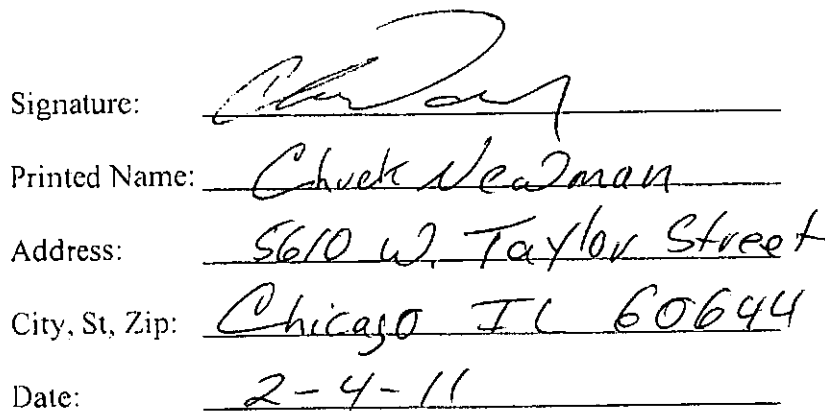 Signature:
Printed Name: Chuck Newman
Address: 5610 W. Taylor Street
City, St, Zip: Chicago IL 60644
Date: 2-4-11